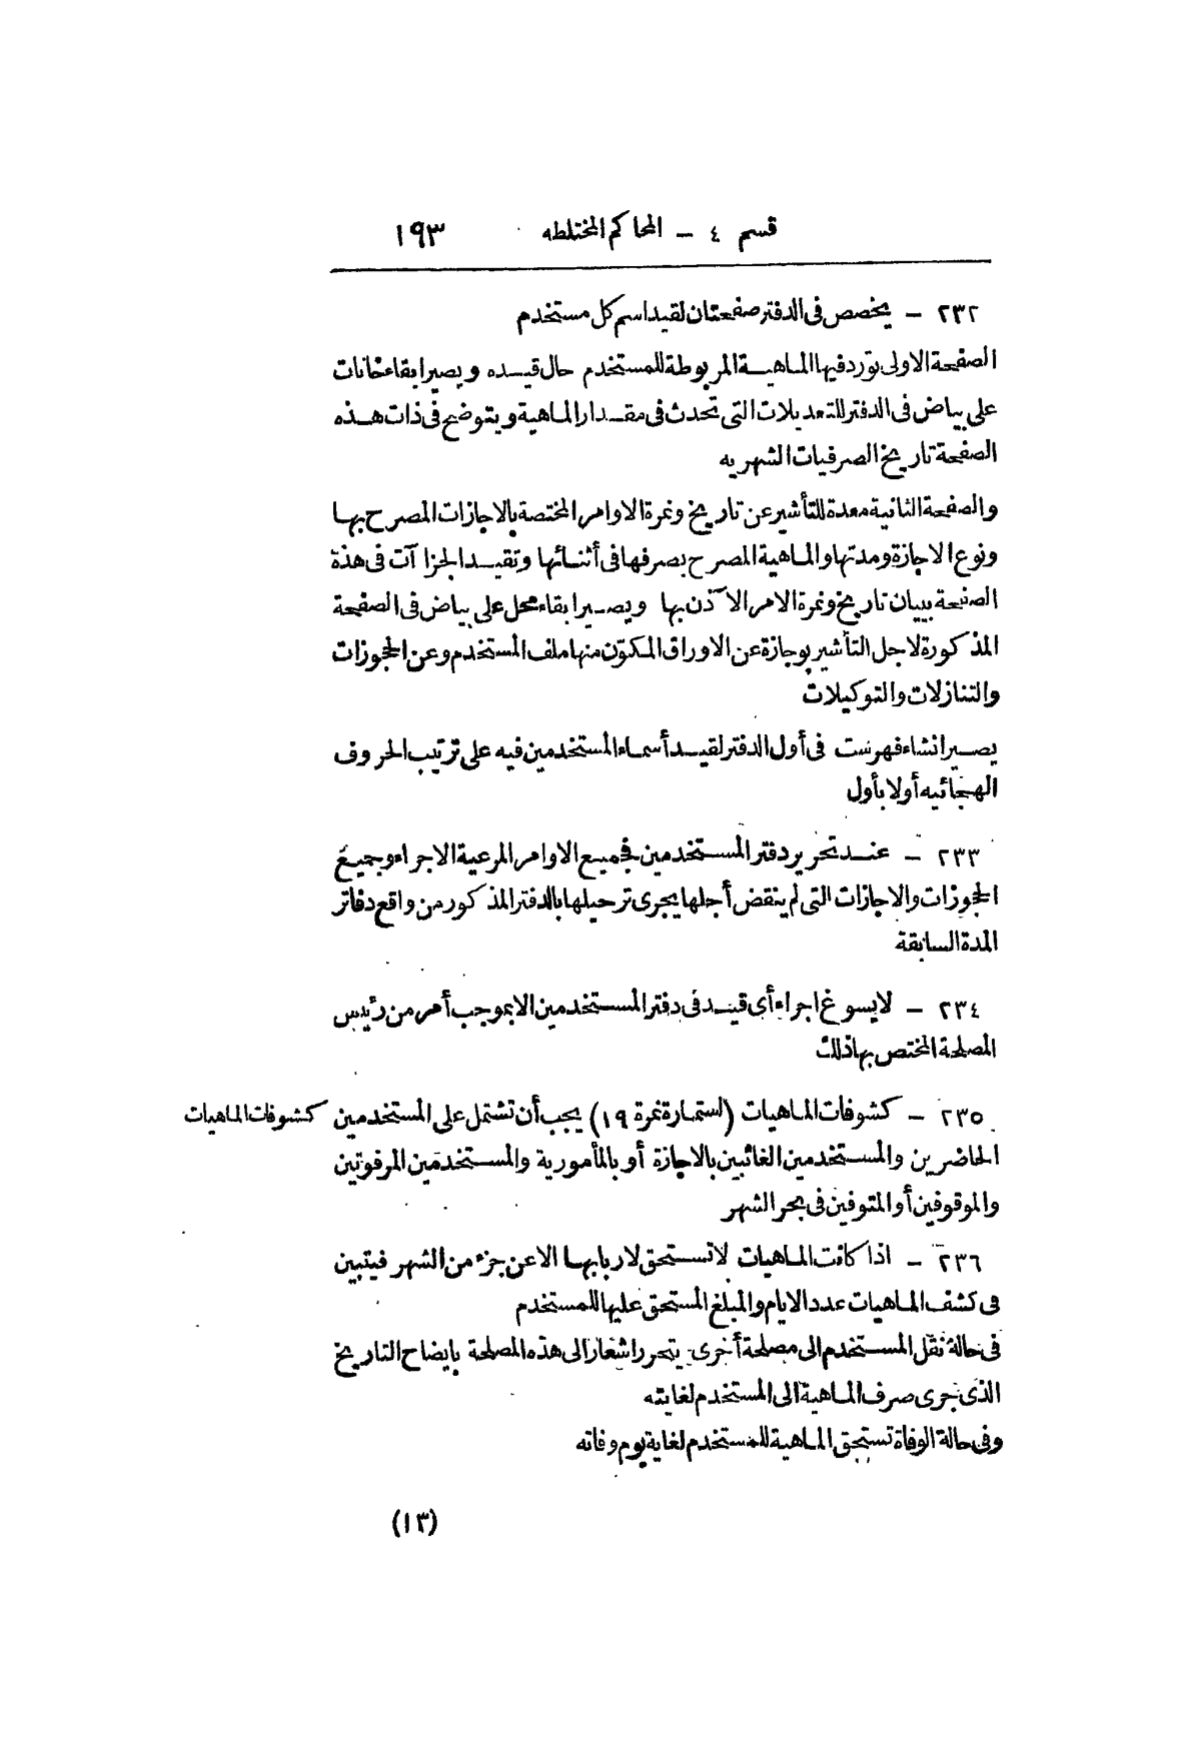 قسم ٤ – المحاكم المختلطه ١٩٣
٢٣٢ – يخصص فى الدفتر صفحتان لقيد اسم كل مستخدم
الصفحة الاولى تورد فيها الماهية المربوطة للمستخدم حال قيده ويصير ابقاء خانات
على بياض فى الدفتر للتعديلات التى تحدث فى مقدار الماهية ويتوضح فى ذات هذه
الصفحة تاريخ الصرفيات الشهريه
والصفحة الثانية معدة للتأشير عن تاريخ ونمرة الاوامر المختصة بالاجازات المصرح بها
ونوع الاجازة ومدتها والماهية المصرح بصرفها فى أثنائها وتقيد الجزا آت فى هذة
الصفحة ببيان تاريخ ونمرة الامر الآذن بها ويصير ابقاء محل على بياض فى الصفحة
المذكورة لاجل التأشير بوجازة عن الاوراق المكوّن منها ملف المستخدم وعن الحجوزات
والتنازلات والتوكيلات
يصير انشاء فهرست فى أول الدفتر لقيد أسماء المستخدمين فيه على ترتيب الحروف
الهجائيه أولا بأول
٢٣٣ – عند تحرير دفتر المستخدمين فجميع الاوامر المرعية الاجراء وجميع
الحجوزات والاجازات التى لم ينقض أجلها يجرى ترحيلها بالدفتر المذكور من واقع دفاتر
المدة السابقة
٢٣٤ – لا يسوغ اجراء أى قيد فى دفتر المستخدمين الا بموجب أمر من رئيس
المصلحة المختص بها ذلك
٢٣٥ – كشوفات الماهيات (استمارة نمرة ١٩) يجب أن تشتمل على المستخدمين كشوفات الماهيات
الحاضرين والمستخدمين الغائبين بالاجازة أو بالمأمورية والمستخدمين المرفوتين
والموقوفين أو المتوفين فى بحر الشهر
٢٣٦ – اذا كانت الماهيات لا تستحق لاربابها الا عن جزء من الشهر فيتبين
فى كشف الماهيات عدد الايام والمبلغ المستحق عليها للمستخدم
فى حالة نقل المستخدم الى مصلحة أخرى يتحرر اشعار الى هذه المصلحة بايضاح التاريخ
الذى جرى صرف الماهية الى المستخدم لغايته
وفى حالة الوفاة تستحق الماهية للمستخدم لغاية يوم وفاته
(١٣)